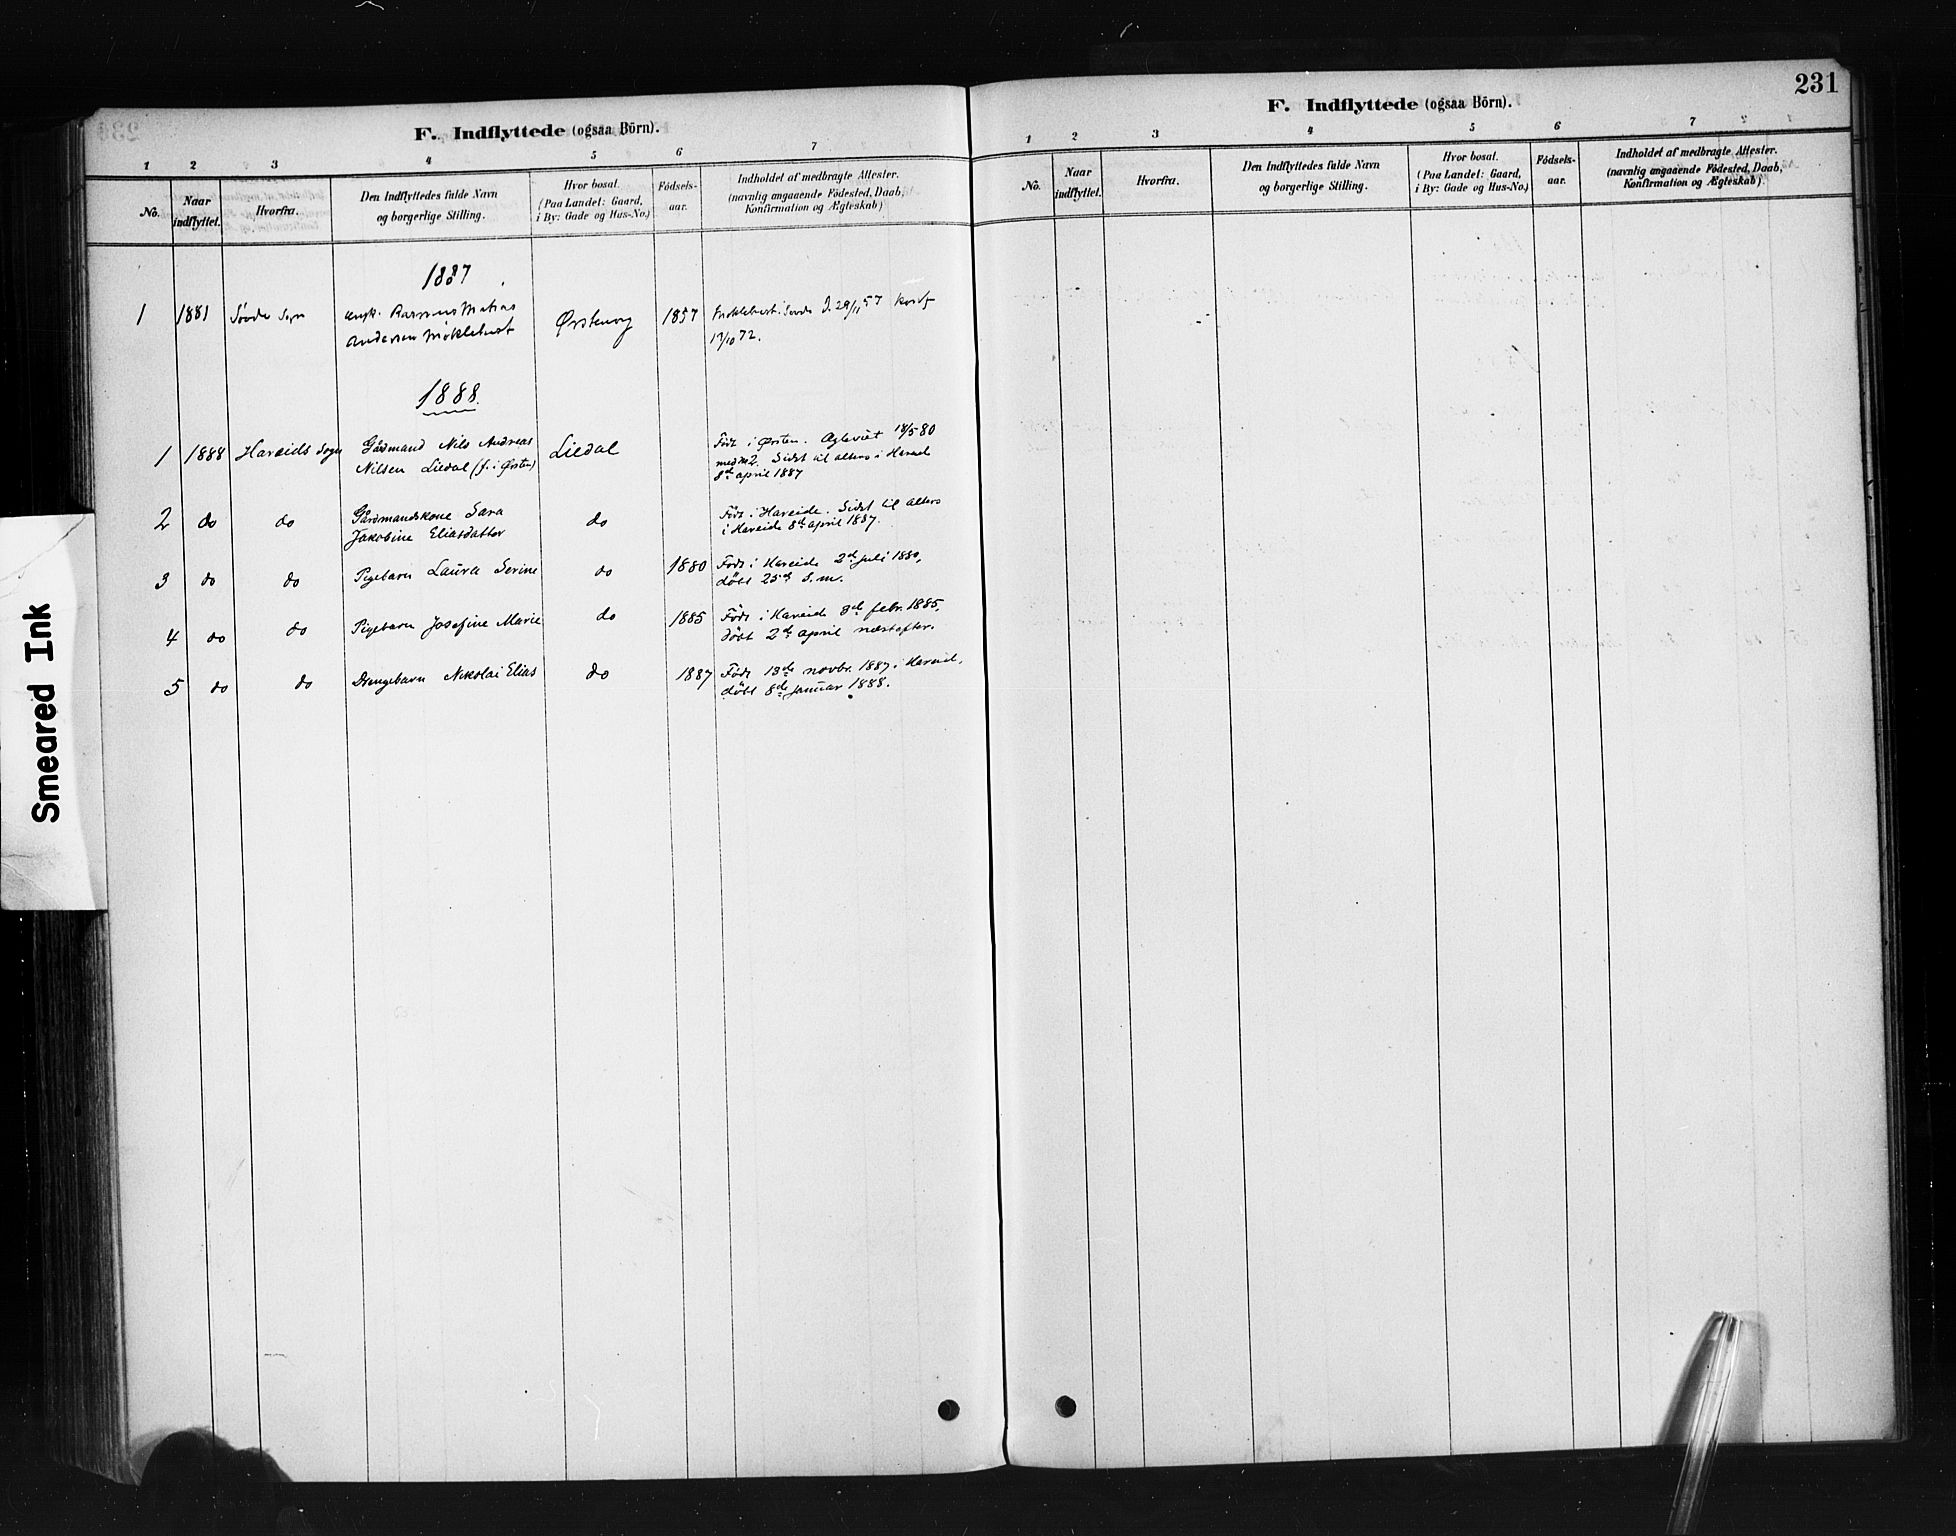 231
F. Indflyttede (ogsaa Börn).
1 2 3 4 5 6 7
No. Naar indflyttet. Hvorfra. Den Indflyttedes fulde Navn og borgerlige Stilling. Hvor bosat. (Paa Landet: Gaard, i By: Gade og Hus-No.) Födsels-aar. Indholdet af medbragte Attester. (navnlig angaaende Födested, Daab, Konfirmation og Ægteskab)
1887
1 1881 Søvde Sogn ungk. Rasmus Matias Ørstenvig 1857 Møklebust i Søvde D. 29/11 57 Konf
Andersen Møklebust 1/10 72.
1888.
1 1888 Hareids Sogn Gårdmand Nils Andreas Liedal Født i Ørsten. Ægteviet 18/5 80
Nilsen Liedal (f. i Ørsten) med No 2. Sidst til alters i Hareid
8de april 1887
2 do do Gårdmandskone Sara do Født i Hareide. Sidst til alters
Jakobine Eliasdatter i Hareide 8de april 1887.
3 do do Pigebarn Laura Serine do 1880 Født i Hareide 2de juli 1880,
døbt 25de s.m.
4 do do Pigebarn Josefine Marie do 1885 Født i Hareide 8de febr. 1885,
døbt 2de april næstefter.
5 do do Drengebarn Nikolai Elias do 1887 Født 13de novbr. 1887 i Hareid,
døbt 8de januar 1888.
F. Indflyttede (ogsaa Börn).
1 2 3 4 5 6 7
No. Naar indflyttet. Hvorfra. Den Indflyttedes fulde Navn og borgerlige Stilling. Hvor bosat. (Paa Landet: Gaard, i By: Gade og Hus-No.) Födsels-aar. Indholdet af medbragte Attester. (navnlig angaaende Födested, Daab, Konfirmation og Ægteskab)
Smeared Ink